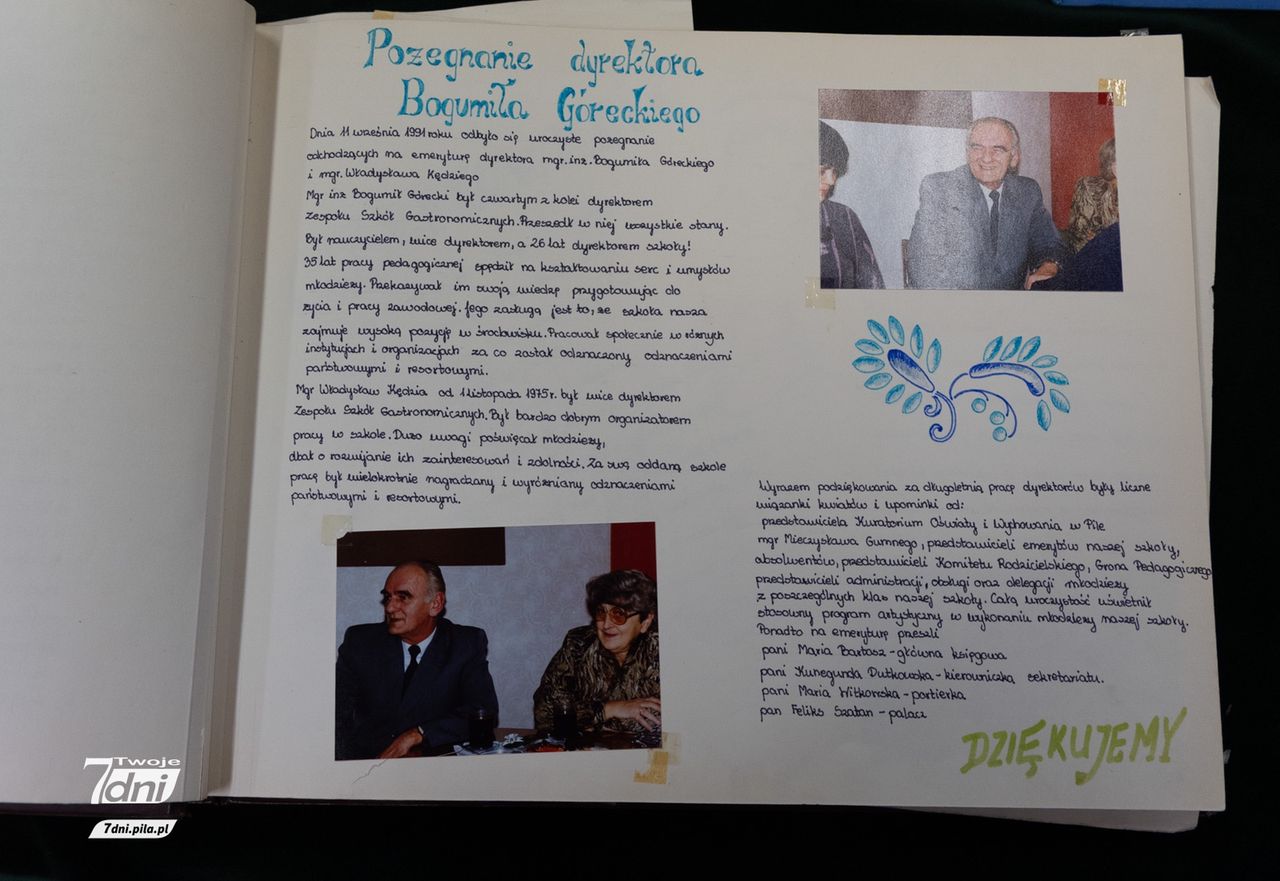 Pozegnanie dyrektora
Bogumiła Góreckiego
Dnia 11 września 1991 roku odbyło się uroczyste pozegnanie
odchodzących na emeryturę dyrektora mgr.inż. Bogumiła Góreckiego
i mgr. Władysława Kędziego
Mgr inż Bogumił Górecki był czwartym z kolei dyrektorem
Zespołu Szkół Gastronomicznych. Przeszedł w niej wszystkie stany.
Był nauczycielem, wice dyrektorem, a 26 lat dyrektorem szkoły!
35 lat pracy pedagogicznej spędził na kształtowaniu serc i umysłów
młodzieży. Przekazywał im swoją wiedzę przygotowując do
życia i pracy zawodowej. Jego zasługą jest to, że szkoła nasza
zajmuje wysoką pozycję w środowisku. Pracował społecznie w różnych
instytucjach i organizacjach za co został odznaczony odznaczeniami
państwowymi i resortowymi.
Mgr Władysław Kędzia od 1 listopada 1975 r. był wice dyrektorem
Zespołu Szkół Gastronomicznych. Był bardzo dobrym organizatorem
pracy w szkole. Dużo uwagi poświęcał młodzieży,
dbał o rozwijanie ich zainteresowań i zdolności. Za swą oddaną szkole
pracę był wielokrotnie nagradzany i wyróżniany odznaczeniami
państwowymi i resortowymi.
Wyrazem podziękowania za długoletnią pracę dyrektorów były liczne
wiązanki kwiatów i upominki od:
przedstawiciela Kuratorium Oświaty i Wychowania w Pile
mgr Mieczysława Gumnego, przedstawicieli emerytów naszej szkoły,
absolwentów, przedstawicieli Komitetu Rodzicielskiego, Grona Pedagogicznego
przedstawicieli administracji, obsługi oraz delegacji młodzieży
z poszczególnych klas naszej szkoły. Całą uroczystość uświetnił
stosowny program artystyczny w wykonaniu młodzieży naszej szkoły.
Ponadto na emeryturę przeszli
pani Maria Bartosz - główna księgowa
pani Kunegunda Dutkowska - kierowniczka sekretariatu.
pani Maria Witkowska - portierka
pan Feliks Szatan - palacz
DZIĘKUJEMY
Twoje
7dni
7dni.pila.pl